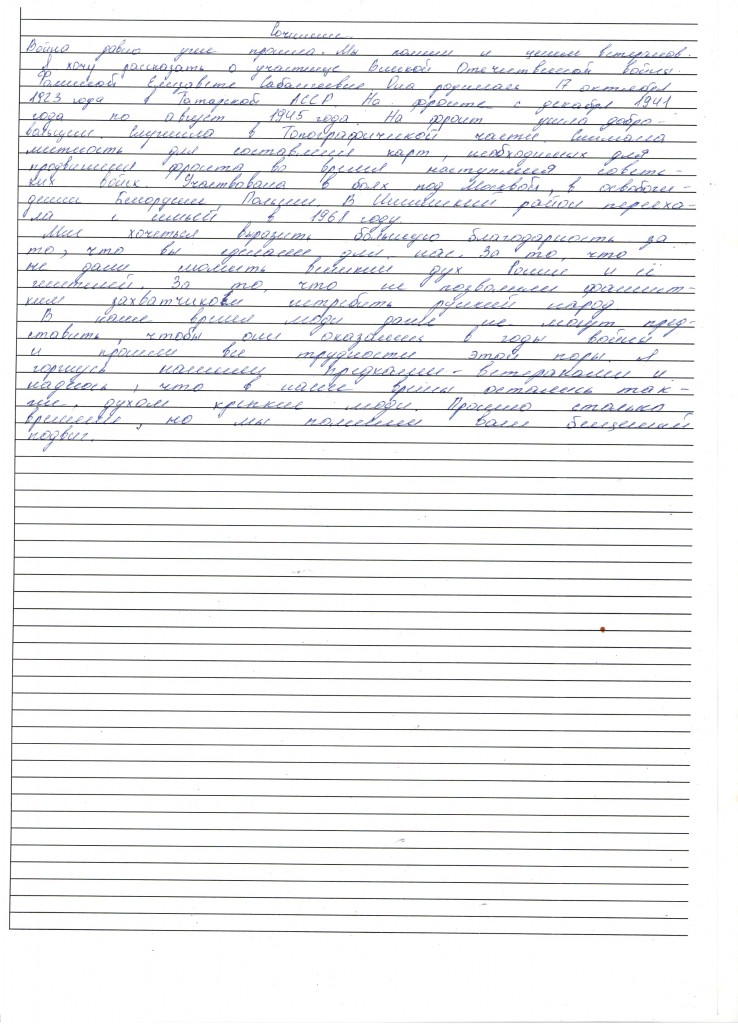 Сочинение.
Война давно уже прошла. Мы помним и ценим ветеранов.
Я хочу рассказать о участнице Великой Отечественной войны
Фоминой Елизавете Савельевне. Она родилась 17 октября
1923 года в Татарской АССР. На фронте с декабря 1941
года по август 1945 года. На фронт ушла добро-
вольцем. Служила в Топографической части. Снимала
местность для составления карт, необходимых для
продвижения фронта во время наступления советс-
ких войск. Участвовала в боях под Москвой, в освобож-
дении Белорусии, Польши. В район перееха-
ла с семьёй в 1961 году.
Мне хочеться выразить большую благодарность за
то, что вы сделали для нас. За то, что
не дали сломить великий дух России и её
жителей. За то, что не позволили фашист-
ким захватчикам истребить русский народ.
В наше время люди даже не могут пред-
ставить, чтобы они оказались в годы войны
и прошли все трудности этой поры. Я
горжусь нашими предками-ветеранами и
надеюсь, что в наше время остались так-
же, духом крепкие люди. Прошло столько
времени, но мы помним ваш бесценный
подвиг.